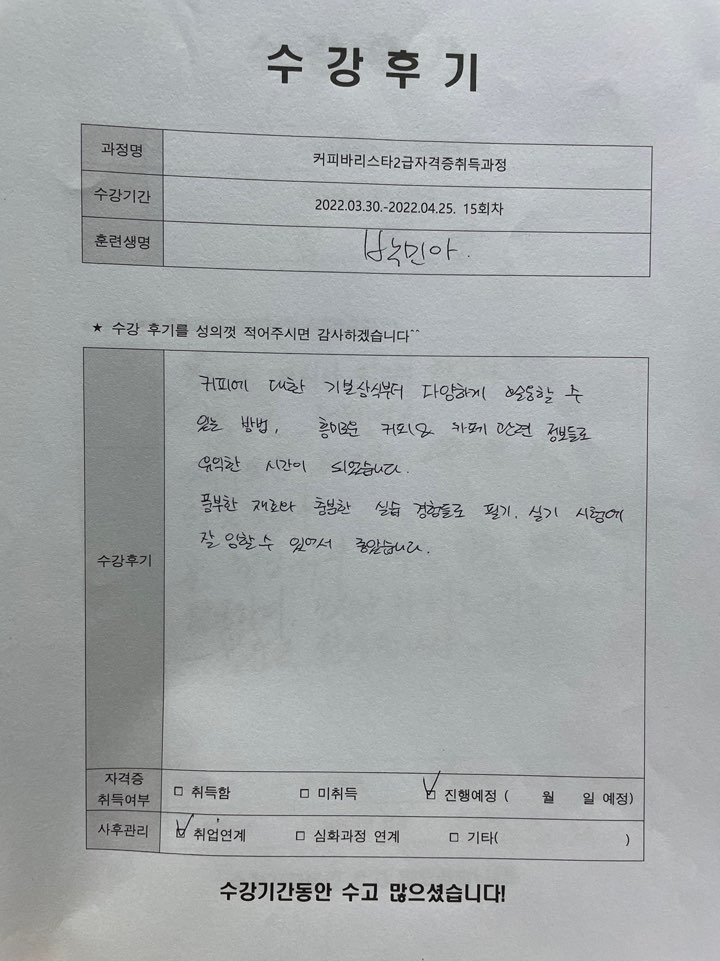 수강후기
과정명 커피바리스타2급자격증취득과정
수강기간 2022.03.30.-2022.04.25. 15회차
훈련생명 박민아.
★ 수강 후기를 성의껏 적어주시면 감사하겠습니다^^
수강후기
커피에 대한 기본상식부터 다양하게 응용할 수
있는 방법, 흥미로운 커피와 카페 관련 정보들로
유익한 시간이 되었습니다.
풍부한 재료와 충분한 실습 경험들로 필기, 실기 시험에
잘 임할 수 있어서 좋았습니다.
자격증
취득여부 □ 취득함 □ 미취득 ☑ 진행예정 ( 월 일 예정)
사후관리 ☑ 취업연계 □ 심화과정 연계 □ 기타( )
수강기간동안 수고 많으셨습니다!